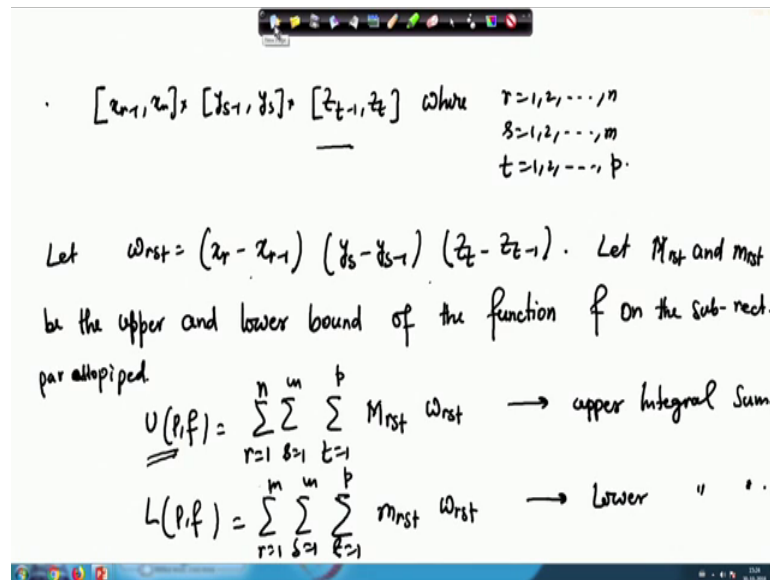 [x_{r-1}, x_n] × [y_{s-1}, y_s] × [z_{t-1}, z_t] where r=1,2,---,n
s=1,2,---,m
t=1,2,---,p.
Let ω_{rst} = (x_r - x_{r-1}) (y_s - y_{s-1}) (z_t - z_{t-1}). Let M_{rst} and m_{rst}
be the upper and lower bound of the function f on the sub-rect.
parallopiped.
U(P,f) = \sum_{r=1}^{n} \sum_{s=1}^{m} \sum_{t=1}^{p} M_{rst} ω_{rst} → upper Integral Sum
L(P,f) = \sum_{r=1}^{m} \sum_{s=1}^{m} \sum_{t=1}^{p} m_{rst} ω_{rst} → Lower " "